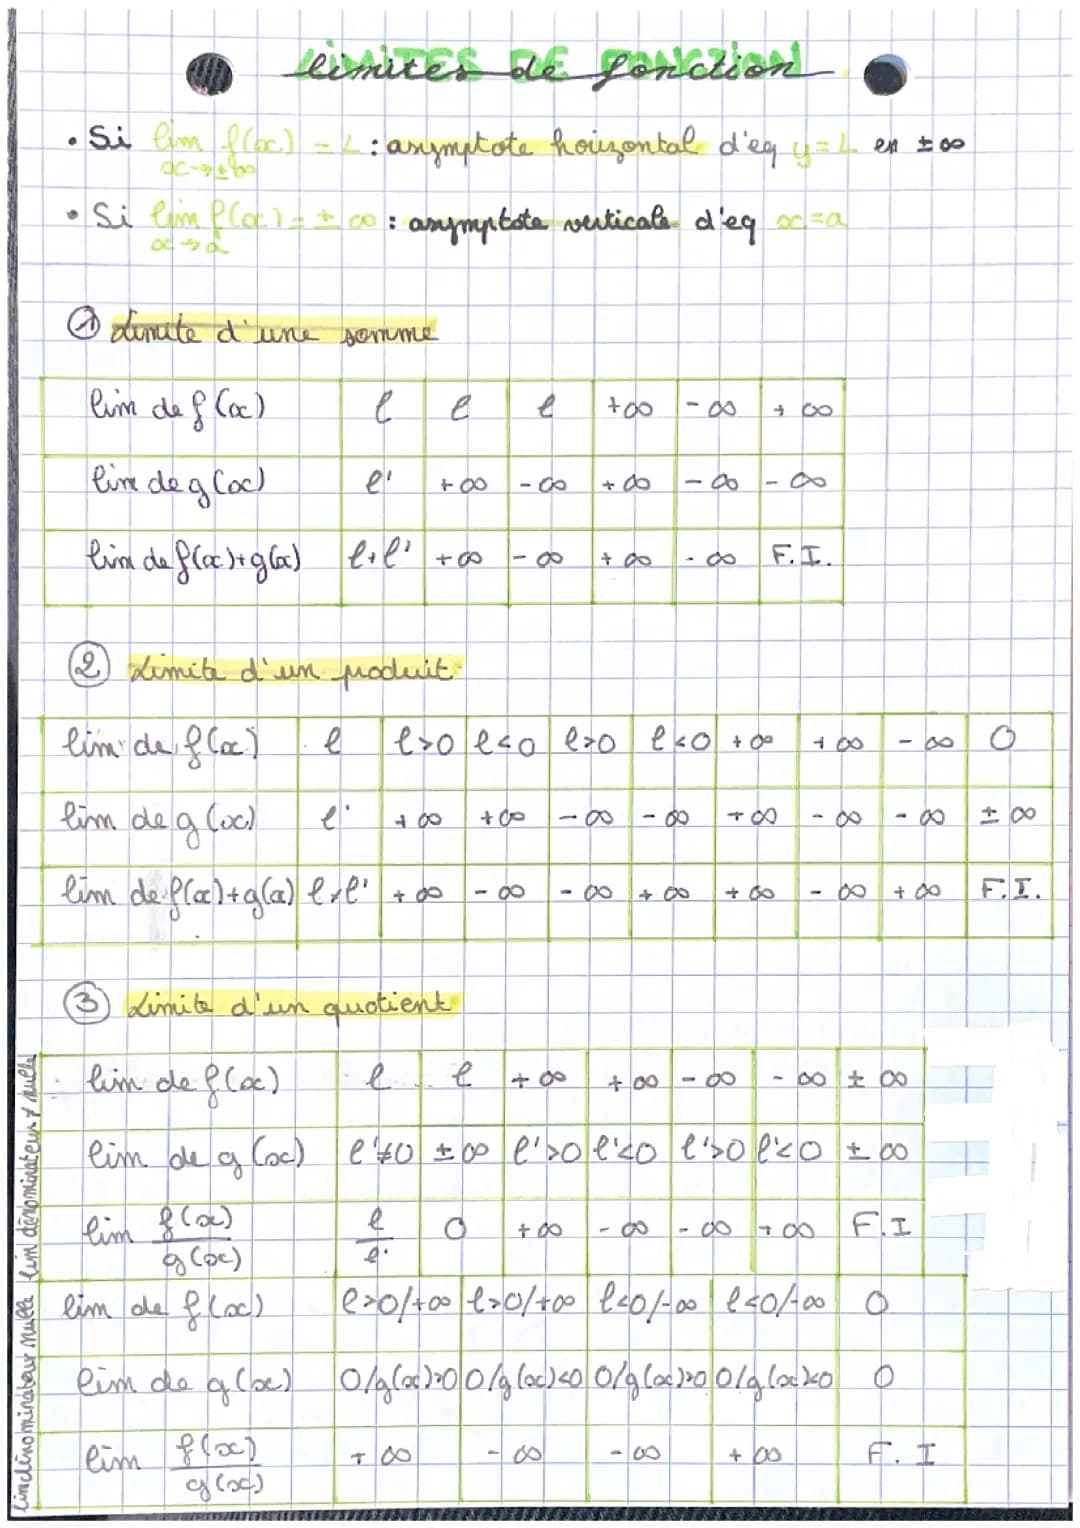 LIMITES DE FONCTION
limites de fonction
• Si lim f(x) = L : asymptote horizontal d'eq y = L en ±∞
x→±∞
• Si lim f(x) = ±∞ : asymptote verticale d'eq x = a
x→a
① Limite d'une somme
lim de f(x) l l l +∞ -∞ +∞
lim de g(x) l' +∞ -∞ +∞ -∞ -∞
lim de f(x)+g(x) l+l' +∞ -∞ +∞ -∞ F.I.
② Limite d'un produit
lim de f(x) l l>0 l<0 l>0 l<0 +∞ +∞ -∞ 0
lim de g(x) l' +∞ +∞ -∞ -∞ +∞ -∞ -∞ ±∞
lim de f(x)+g(x) l×l' +∞ -∞ -∞ +∞ +∞ -∞ +∞ F.I.
③ Limite d'un quotient
lim dénominateur ≠ nulle
lim de f(x) l l +∞ +∞ -∞ -∞ ±∞
lim de g(x) l'≠0 ±∞ l'>0 l'<0 l'>0 l'<0 ±∞
lim f(x)/g(x) l/l' 0 +∞ -∞ -∞ +∞ F.I
lim dénominateur nulle
lim de f(x) l>0/+∞ l>0/+∞ l<0/-∞ l<0/-∞ 0
lim de g(x) 0/g(x)>0 0/g(x)<0 0/g(x)>0 0/g(x)<0 0
lim f(x)/g(x) +∞ -∞ -∞ +∞ F.I